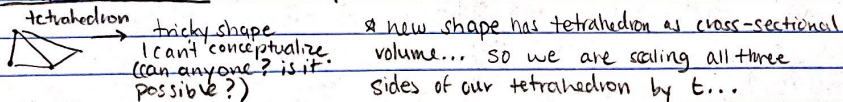 tetrahedron
tricky shape
I can't conceptualize.
(can anyone? is it
possible?)
* new shape has tetrahedron as cross-sectional
volume... so we are scaling all three
sides of our tetrahedron by t...